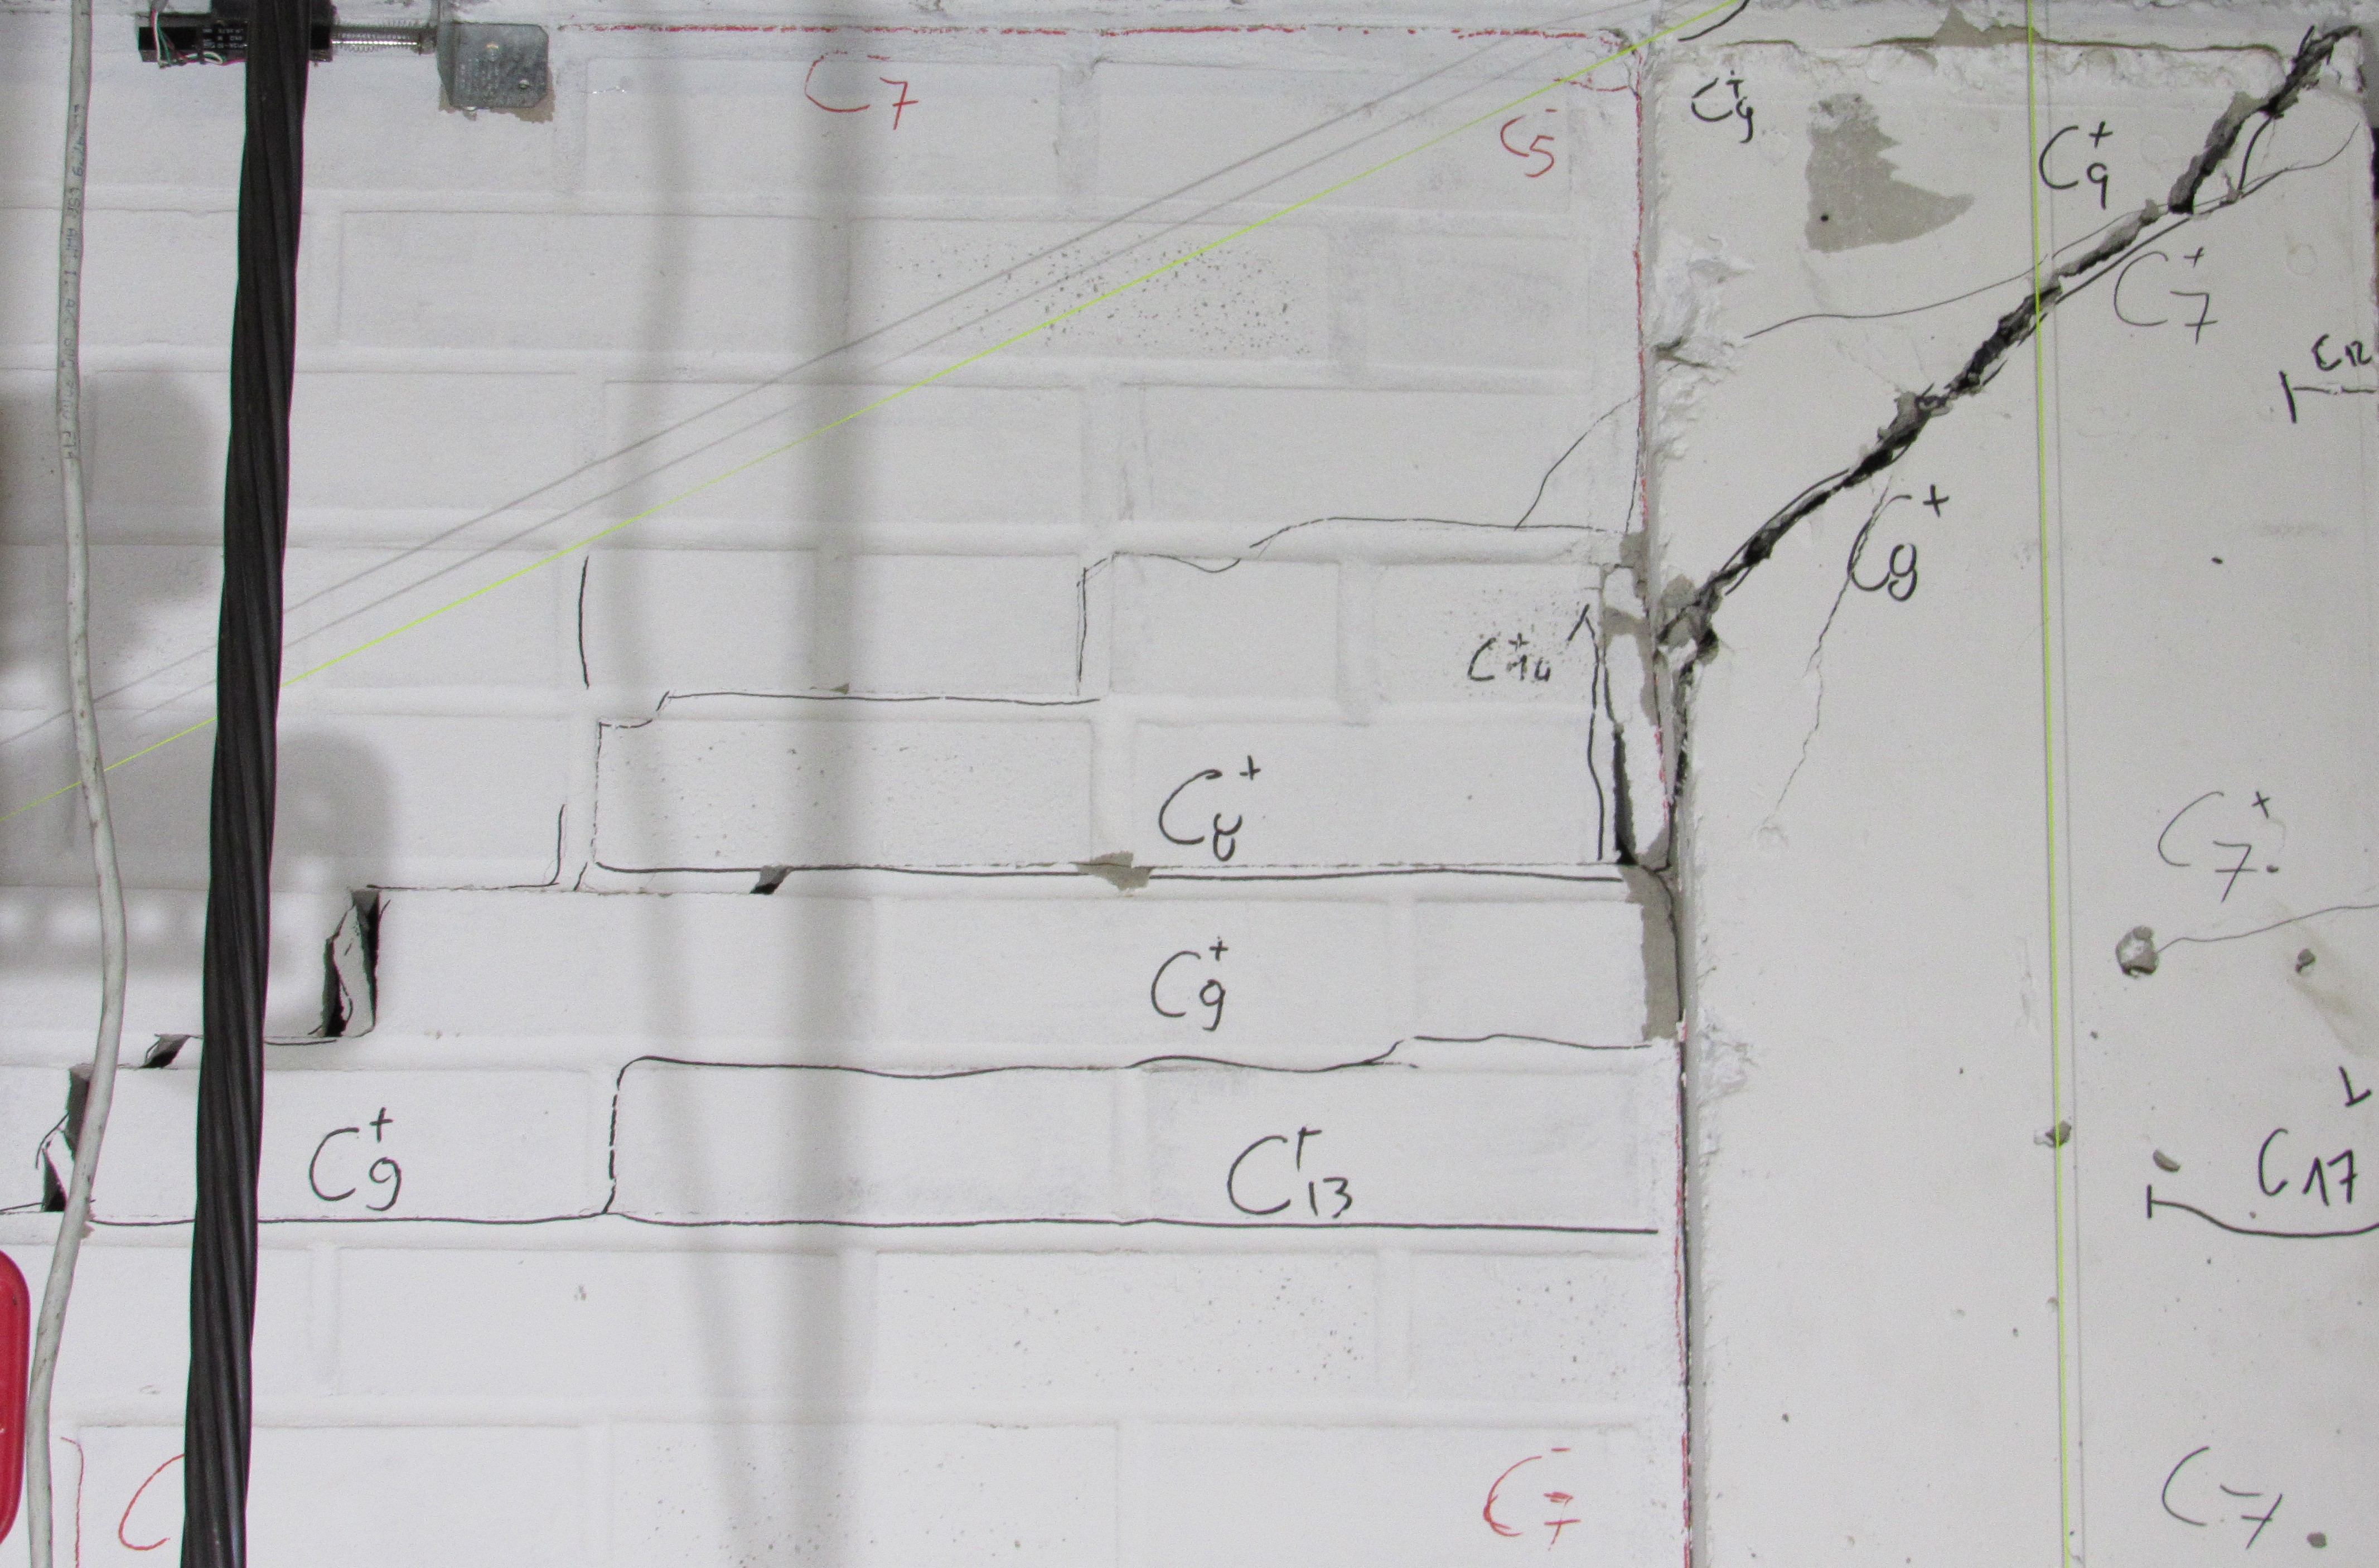 C7-
C5-
C9+
C9+
C7+
C12
C9+
C8+
C7+
C9+
C9+
C13+
C17
C
C7-
C7